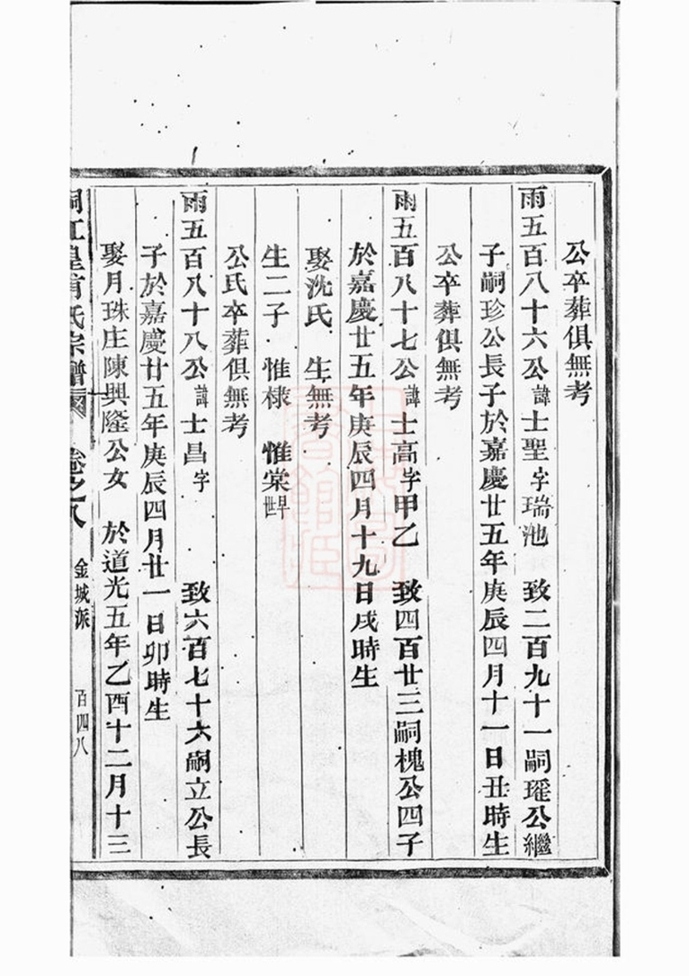 公卒葬俱無考
雨五百八十六公諱士聖字瑞池 致二百九十一嗣瑤公繼
子嗣珍公長子於嘉慶廿五年庚辰四月十一日丑時生
公卒葬俱無考
雨五百八十七公諱士高字甲乙 致四百廿三嗣槐公四子
於嘉慶廿五年庚辰四月十九日戌時生
娶沈氏 生無考
生二子 惟棣 惟棠早世
公氏卒葬俱無考
雨五百八十八公諱士昌字 致六百七十六嗣立公長
子於嘉慶廿五年庚辰四月廿一日卯時生
娶月珠庄陳興隆公女 於道光五年乙酉十二月十三
皇甫氏宗譜 卷之八 金城派 百四八